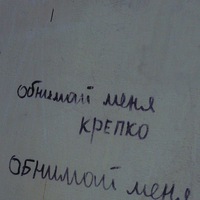 обнимай меня
крепко
обнимай меня